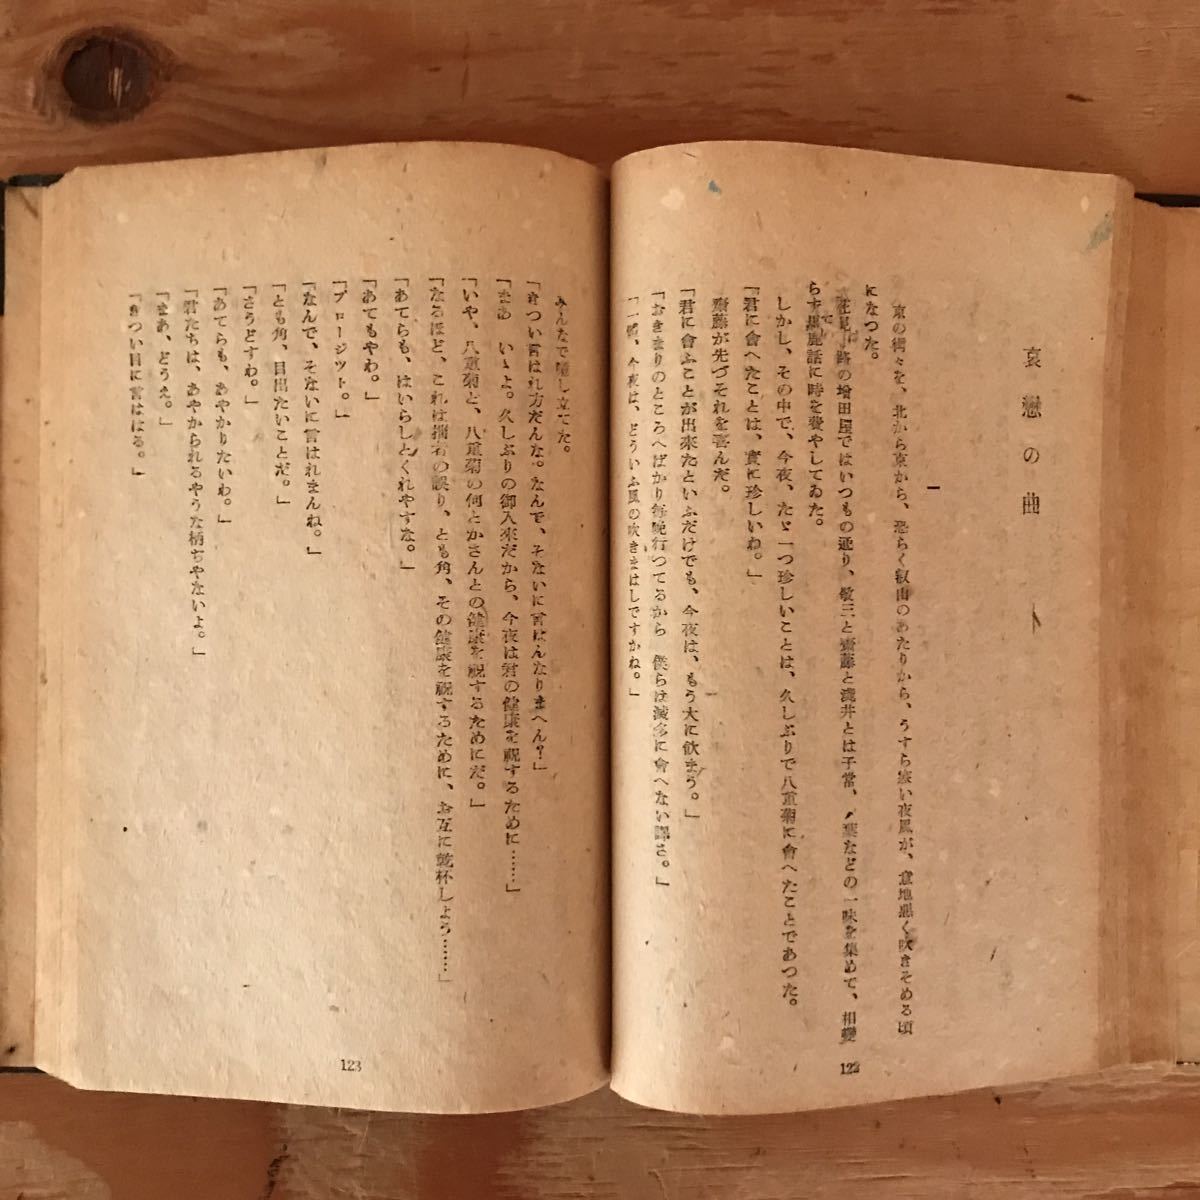 哀戀の曲
一
京の街々を、北から東から、恐らく叡山のあたりから、うすら寒い夜風が、意地悪く吹きそめる頃
になつた。
花見小路の増田屋ではいつもの通り、敬三と齋藤と淺井とは子常、〆葉などの一味を集めて、相變
らず馬鹿話に時を費やしてゐた。
しかし、その中で、今夜、たゞ一つ珍しいことは、久しぶりで八重菊に會へたことであつた。
「君に會へたことは、實に珍しいね。」
齋藤が先づそれを喜んだ。
「君に會ふことが出來たといふだけでも、今夜は、もう大に飮まう。」
「おきまりのところへばかり毎晩行つてるから 僕らは滅多に會へない譯さ。」
「一體、今夜は、どういふ風の吹きまはしですかね。」
122
みんなで囃し立てた。
「きつい言はれ方だんな。なんで、そないに言はんなりまへん?」
「まあ いゝよ。久しぶりの御入來だから、今夜は君の健康を祝するために……」
「いや、八重菊と、八重菊の何とかさんとの健康を祝するためにだ。」
「なるほど、これは拙者の誤り、とも角、その健康を祝するために、お互に乾杯しよう……」
「あてらも、はいらしとくれやすな。」
「あてもやわ。」
「プロージツト。」
「なんで、そないに言はれまんね。」
「とも角、目出たいことだ。」
「さうどすわ。」
「あてらも、あやかりたいわ。」
「君たちは、あやかられるやうな柄ぢやないよ。」
「まあ、どうえ。」
「きつい目に言はる。」
123